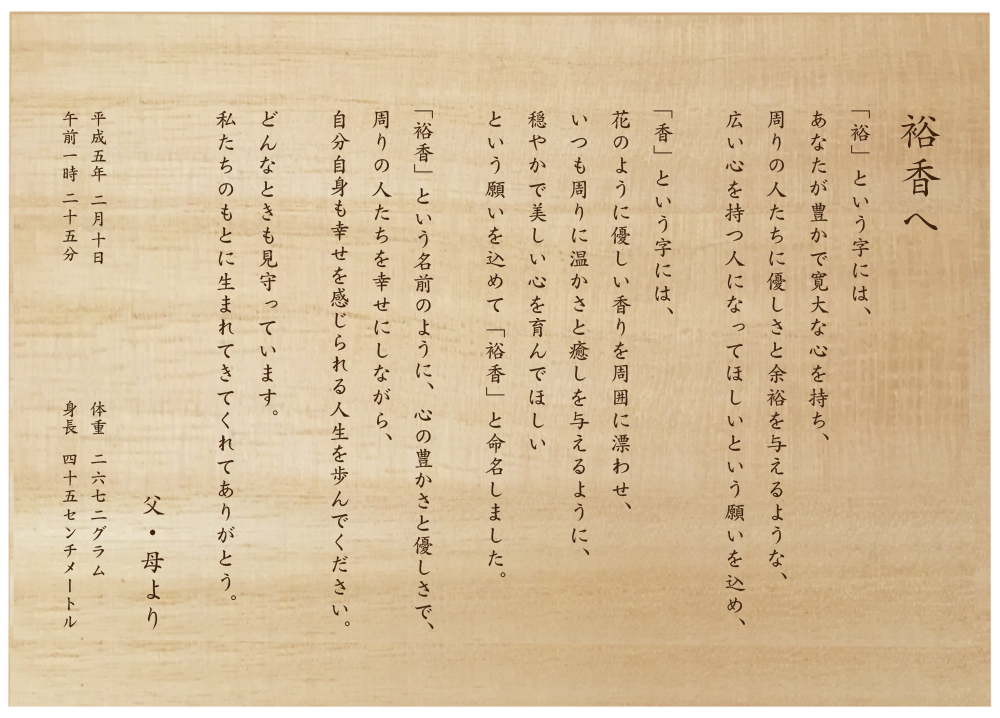 裕香へ
「裕」という字には、
あなたが豊かで寛大な心を持ち、
周りの人たちに優しさと余裕を与えるような、
広い心を持つ人になってほしいという願いを込め、
「香」という字には、
花のように優しい香りを周囲に漂わせ、
いつも周りに温かさと癒しを与えるように、
穏やかで美しい心を育んでほしい
という願いを込めて「裕香」と命名しました。
「裕香」という名前のように、心の豊かさと優しさで、
周りの人たちを幸せにしながら、
自分自身も幸せを感じられる人生を歩んでください。
どんなときも見守っています。
私たちのもとに生まれてきてくれてありがとう。
父・母より
平成五年 二月十日 体重 二六七二グラム
午前一時 二十五分 身長 四十五センチメートル